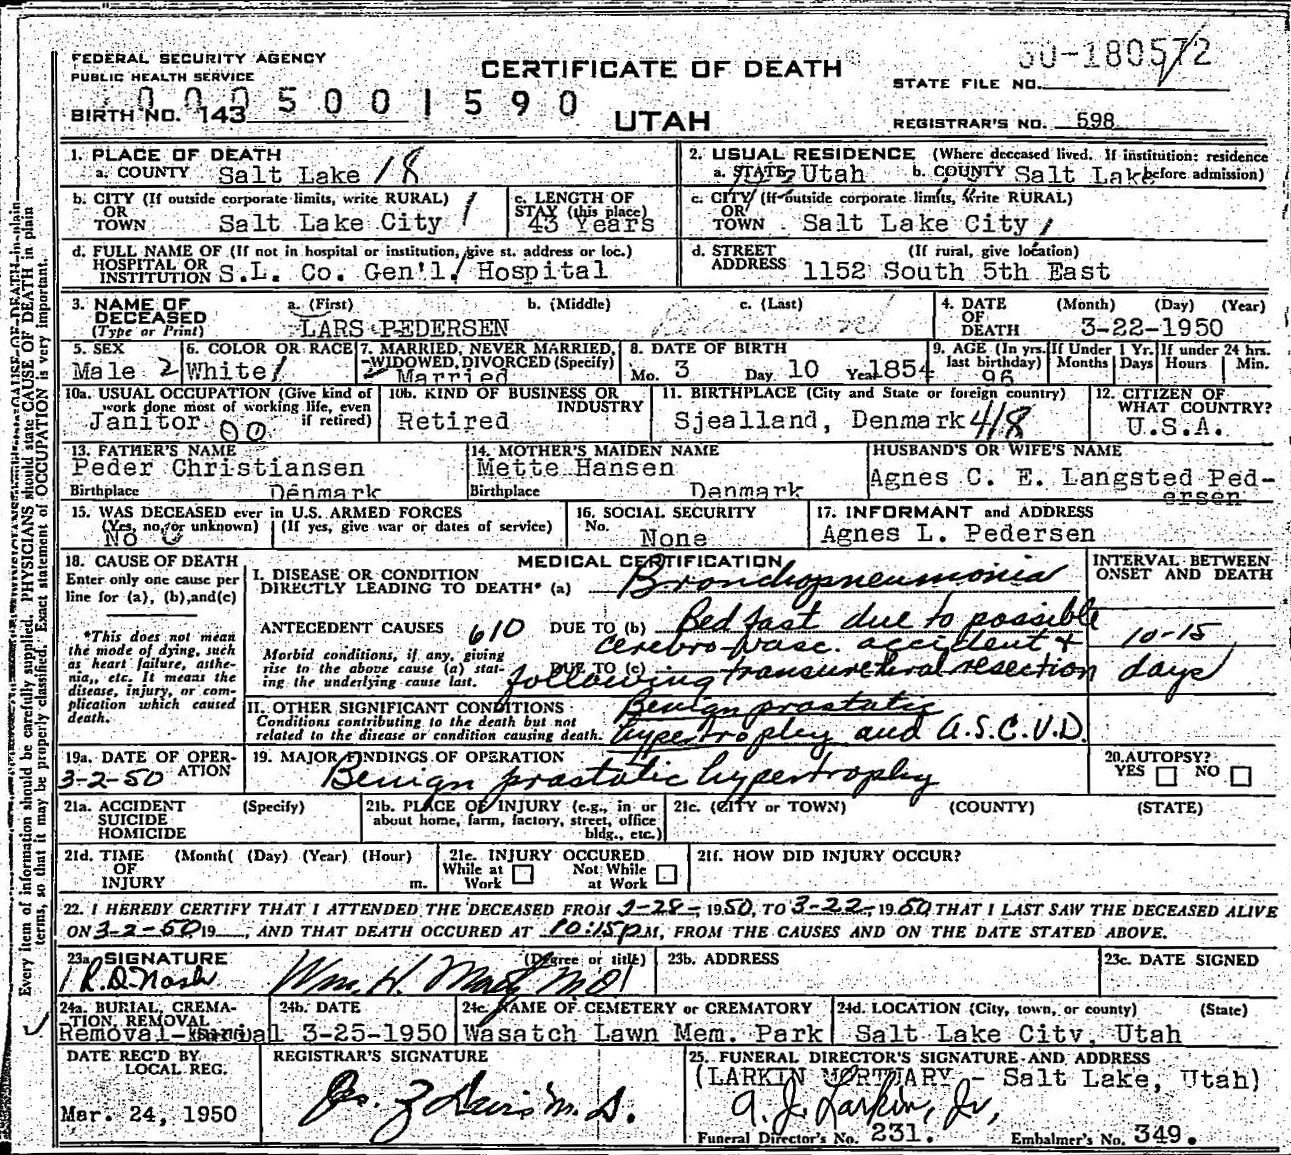 FEDERAL SECURITY AGENCY
PUBLIC HEALTH SERVICE
CERTIFICATE OF DEATH
UTAH
0005001590
BIRTH NO. 143
STATE FILE NO. 50-180572
REGISTRAR'S NO. 598
1. PLACE OF DEATH
a. COUNTY Salt Lake 18
2. USUAL RESIDENCE (Where deceased lived. If institution: residence before admission)
a. STATE Utah b. COUNTY Salt Lake
b. CITY (If outside corporate limits, write RURAL)
OR TOWN Salt Lake City 1
c. LENGTH OF STAY (this place)
43 Years
c. CITY (If outside corporate limits, write RURAL)
OR TOWN Salt Lake City 1
d. FULL NAME OF (If not in hospital or institution, give st. address or loc.)
HOSPITAL OR INSTITUTION S.L. Co. Gen'l. Hospital
d. STREET ADDRESS (If rural, give location)
1152 South 5th East
3. NAME OF DECEASED (Type or Print)
a. (First) b. (Middle) c. (Last)
LARS PEDERSEN
4. DATE OF DEATH (Month) (Day) (Year)
3-22-1950
5. SEX
Male 2
6. COLOR OR RACE
White 1
7. MARRIED, NEVER MARRIED, WIDOWED, DIVORCED (Specify)
Married
8. DATE OF BIRTH
Mo. 3 Day 10 Year 1854
9. AGE (In yrs. last birthday)
96
If Under 1 Yr. Months Days
If under 24 hrs. Hours Min.
10a. USUAL OCCUPATION (Give kind of work done most of working life, even if retired)
Janitor 00
10b. KIND OF BUSINESS OR INDUSTRY
Retired
11. BIRTHPLACE (City and State or foreign country)
Sjealland, Denmark 418
12. CITIZEN OF WHAT COUNTRY?
U.S.A.
13. FATHER'S NAME
Peder Christiansen
Birthplace Denmark
14. MOTHER'S MAIDEN NAME
Mette Hansen
Birthplace Denmark
HUSBAND'S OR WIFE'S NAME
Agnes C. E. Langsted Ped-
ersen
15. WAS DECEASED ever in U.S. ARMED FORCES
(Yes, no, or unknown) (If yes, give war or dates of service)
No 0
16. SOCIAL SECURITY
No. None
17. INFORMANT and ADDRESS
Agnes L. Pedersen
18. CAUSE OF DEATH
Enter only one cause per line for (a), (b), and (c)
*This does not mean the mode of dying, such as heart failure, asthenia, etc. It means the disease, injury, or complication which caused death.
MEDICAL CERTIFICATION
I. DISEASE OR CONDITION
DIRECTLY LEADING TO DEATH* (a) Bronchopneumonia
ANTECEDENT CAUSES 610 DUE TO (b) Bed fast due to possible
cerebro-vasc. accident +
Morbid conditions, if any, giving rise to the above cause (a) stating the underlying cause last.
DUE TO (c) following transurethral resection
INTERVAL BETWEEN ONSET AND DEATH
10-15
days
II. OTHER SIGNIFICANT CONDITIONS
Conditions contributing to the death but not related to the disease or condition causing death.
Benign prostatic
hypertrophy and A.S.C.V.D.
19a. DATE OF OPERATION
3-2-50
19. MAJOR FINDINGS OF OPERATION
Benign prostatic hypertrophy
20. AUTOPSY?
YES NO
21a. ACCIDENT SUICIDE HOMICIDE (Specify)
21b. PLACE OF INJURY (e.g., in or about home, farm, factory, street, office bldg., etc.)
21c. (CITY or TOWN) (COUNTY) (STATE)
21d. TIME OF INJURY (Month( (Day) (Year) (Hour) m.
21e. INJURY OCCURED
While at Work Not While at Work
21f. HOW DID INJURY OCCUR?
22. I HEREBY CERTIFY THAT I ATTENDED THE DECEASED FROM 2-28- 1950, TO 3-22-, 1950 THAT I LAST SAW THE DECEASED ALIVE
ON 3-2-50 19, AND THAT DEATH OCCURED AT 10:15p M, FROM THE CAUSES AND ON THE DATE STATED ABOVE.
23a. SIGNATURE (Degree or title)
R.D. Nash Wm. H. MD
23b. ADDRESS
23c. DATE SIGNED
24a. BURIAL, CREMATION, REMOVAL
Removal-Burial
24b. DATE
3-25-1950
24c. NAME OF CEMETERY or CREMATORY
Wasatch Lawn Mem. Park
24d. LOCATION (City, town, or county) (State)
Salt Lake City, Utah
DATE REC'D BY LOCAL REG.
Mar. 24, 1950
REGISTRAR'S SIGNATURE
Jos. Z Davis M.D.
25. FUNERAL DIRECTOR'S SIGNATURE AND ADDRESS
(LARKIN MORTUARY - Salt Lake, Utah)
A. J. Larkin, Jr.
Funeral Director's No. 231. Embalmer's No. 349.
Every item of information should be carefully supplied. PHYSICIANS should state CAUSE OF DEATH in plain
terms, so that it may be properly classified. Exact statement of OCCUPATION is very important.